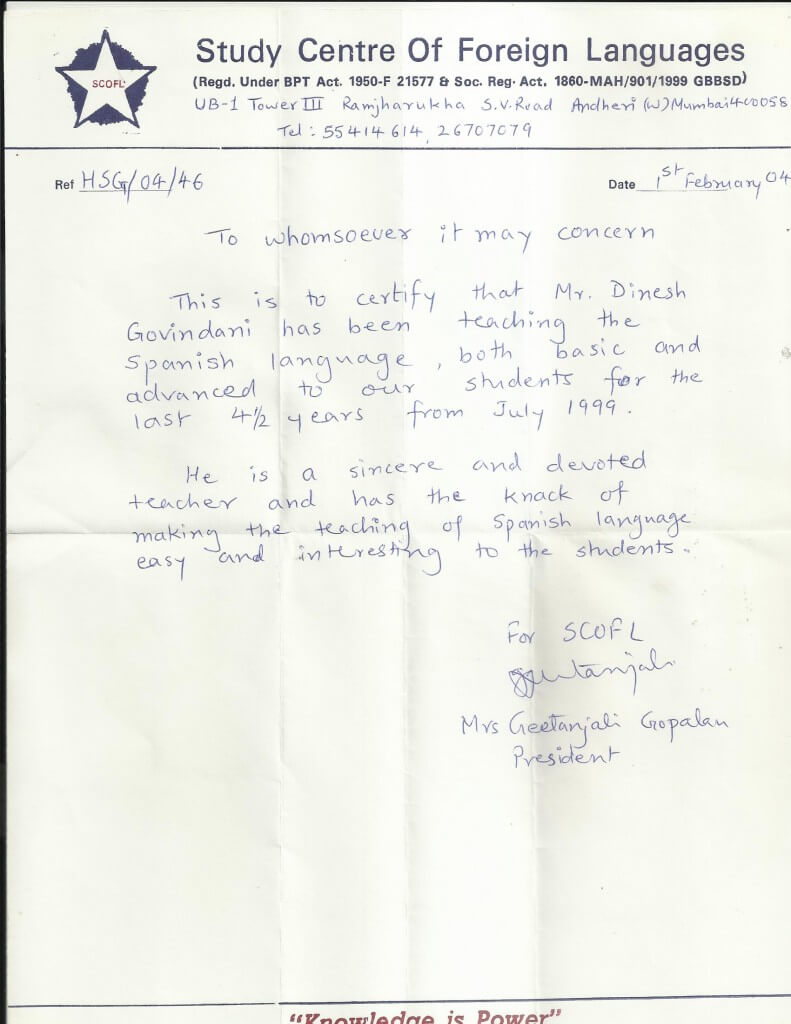 SCOFL
Study Centre Of Foreign Languages
(Regd. Under BPT Act. 1950-F 21577 & Soc. Reg. Act. 1860-MAH/901/1999 GBBSD)
UB-1 Tower III Ramjharukha S.V.Road Andheri (W) Mumbai 400058
Tel : 55414614, 26707079
Ref HSG/04/46
Date 1st February 04
To whomsoever it may concern
This is to certify that Mr. Dinesh
Govindani has been teaching the
Spanish language, both basic and
advanced to our students for the
last 4½ years from July 1999.
He is a sincere and devoted
teacher and has the knack of
making the teaching of Spanish language
easy and interesting to the students.
For SCOFL
Geetanjali
Mrs Geetanjali Gopalan
President
"Knowledge is Power"